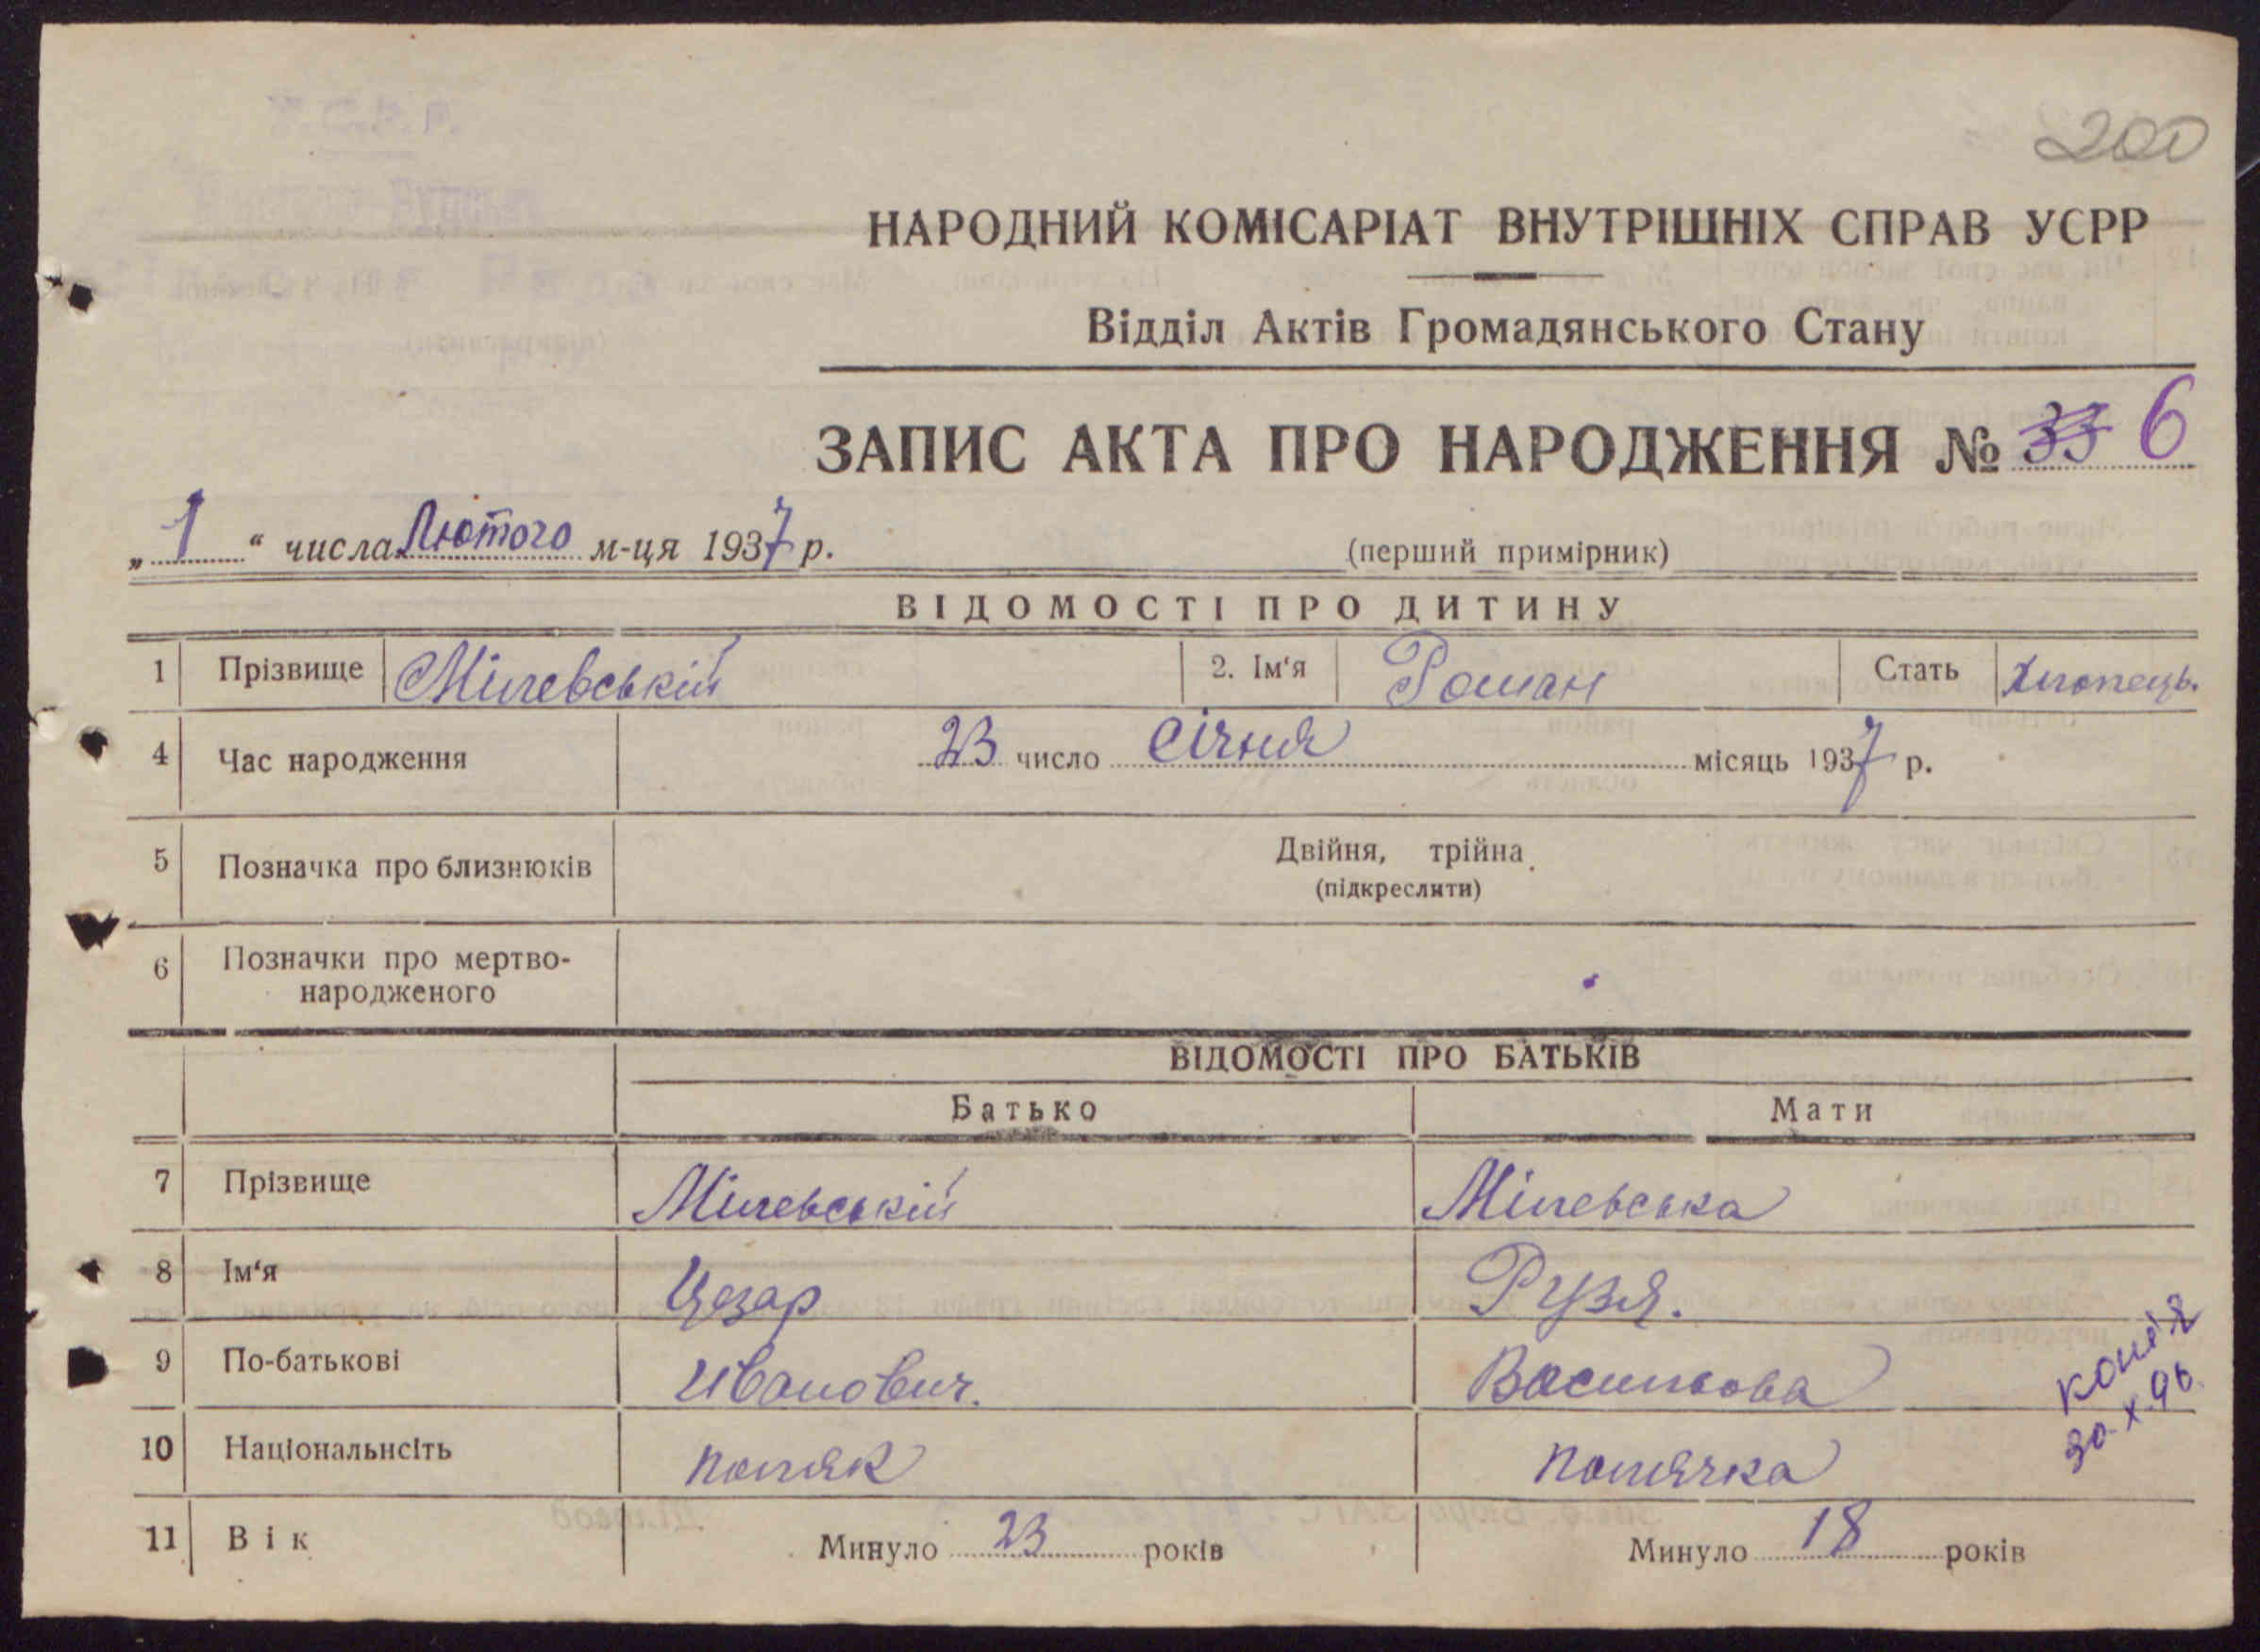 200
НАРОДНИЙ КОМІСАРІАТ ВНУТРІШНІХ СПРАВ УСРР
Відділ Актів Громадянського Стану
ЗАПИС АКТА ПРО НАРОДЖЕННЯ № 33 6
„1“ числа Лютого м-ця 1937 р. (перший примірник)
ВІДОМОСТІ ПРО ДИТИНУ
1 Прізвище Мілевській 2. Ім‘я Роман Стать Хлопець.
4 Час народження 23 число Січня місяць 1937 р.
5 Позначка про близнюків Двійня, трійна
(підкреслити)
6 Позначки про мертво-
народженого
ВІДОМОСТІ ПРО БАТЬКІВ
Батько Мати
7 Прізвище Мілевській Мілевська
8 Ім‘я Цезар Рузя.
9 По-батькові Иванович. Василлова
10 Національнсіть поляк полячка
копія
30.X.96
11 Вік Минуло 23 років Минуло 18 років